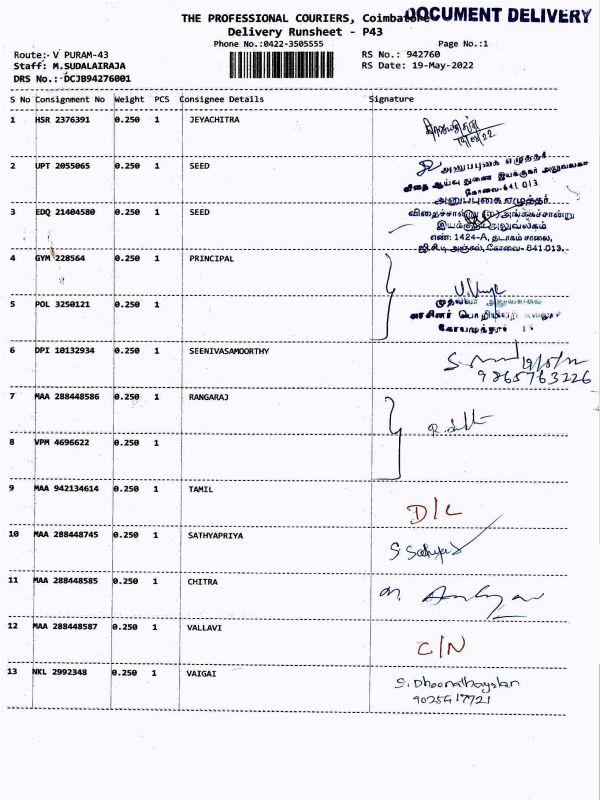 THE PROFESSIONAL COURIERS, Coimbatore
DOCUMENT DELIVERY
Delivery Runsheet - P43
Phone No.:0422-3505555
Page No.:1
Route:- V PURAM-43
RS No.: 942760
Staff: M.SUDALAIRAJA
RS Date: 19-May-2022
DRS No.:-DCJB94276001
S No Consignment No Weight PCS Consignee Details Signature
1 HSR 2376391 0.250 1 JEYACHITRA
2 UPT 2055065 0.250 1 SEED
அனுபபுகை எழுத்தர்
விதை ஆய்வு துணை இயக்குநர் அலுவலகம்
கோவை-641 013
3 EDQ 21404580 0.250 1 SEED
அனுப்புகை எழுத்தர்
விதைச்சான்று (ம) அங்ககச்சான்று
இயக்குநர் அலுவலகம்
எண்: 1424-A, தடாகம் சாலை,
ஜி.சி.டி அஞ்சல், கோவை- 641 013.
4 GYM 228564 0.250 1 PRINCIPAL
5 POL 3250121 0.250 1
முதல்வர்
கோயமுத்தூர் 13
6 DPI 10132934 0.250 1 SEENIVASAMOORTHY
9865763226
7 MAA 288448586 0.250 1 RANGARAJ
8 VPM 4696622 0.250 1
9 MAA 942134614 0.250 1 TAMIL
D/L
10 MAA 288448745 0.250 1 SATHYAPRIYA
11 MAA 288448585 0.250 1 CHITRA
12 MAA 288448587 0.250 1 VALLAVI
C/N
13 NKL 2992348 0.250 1 VAIGAI